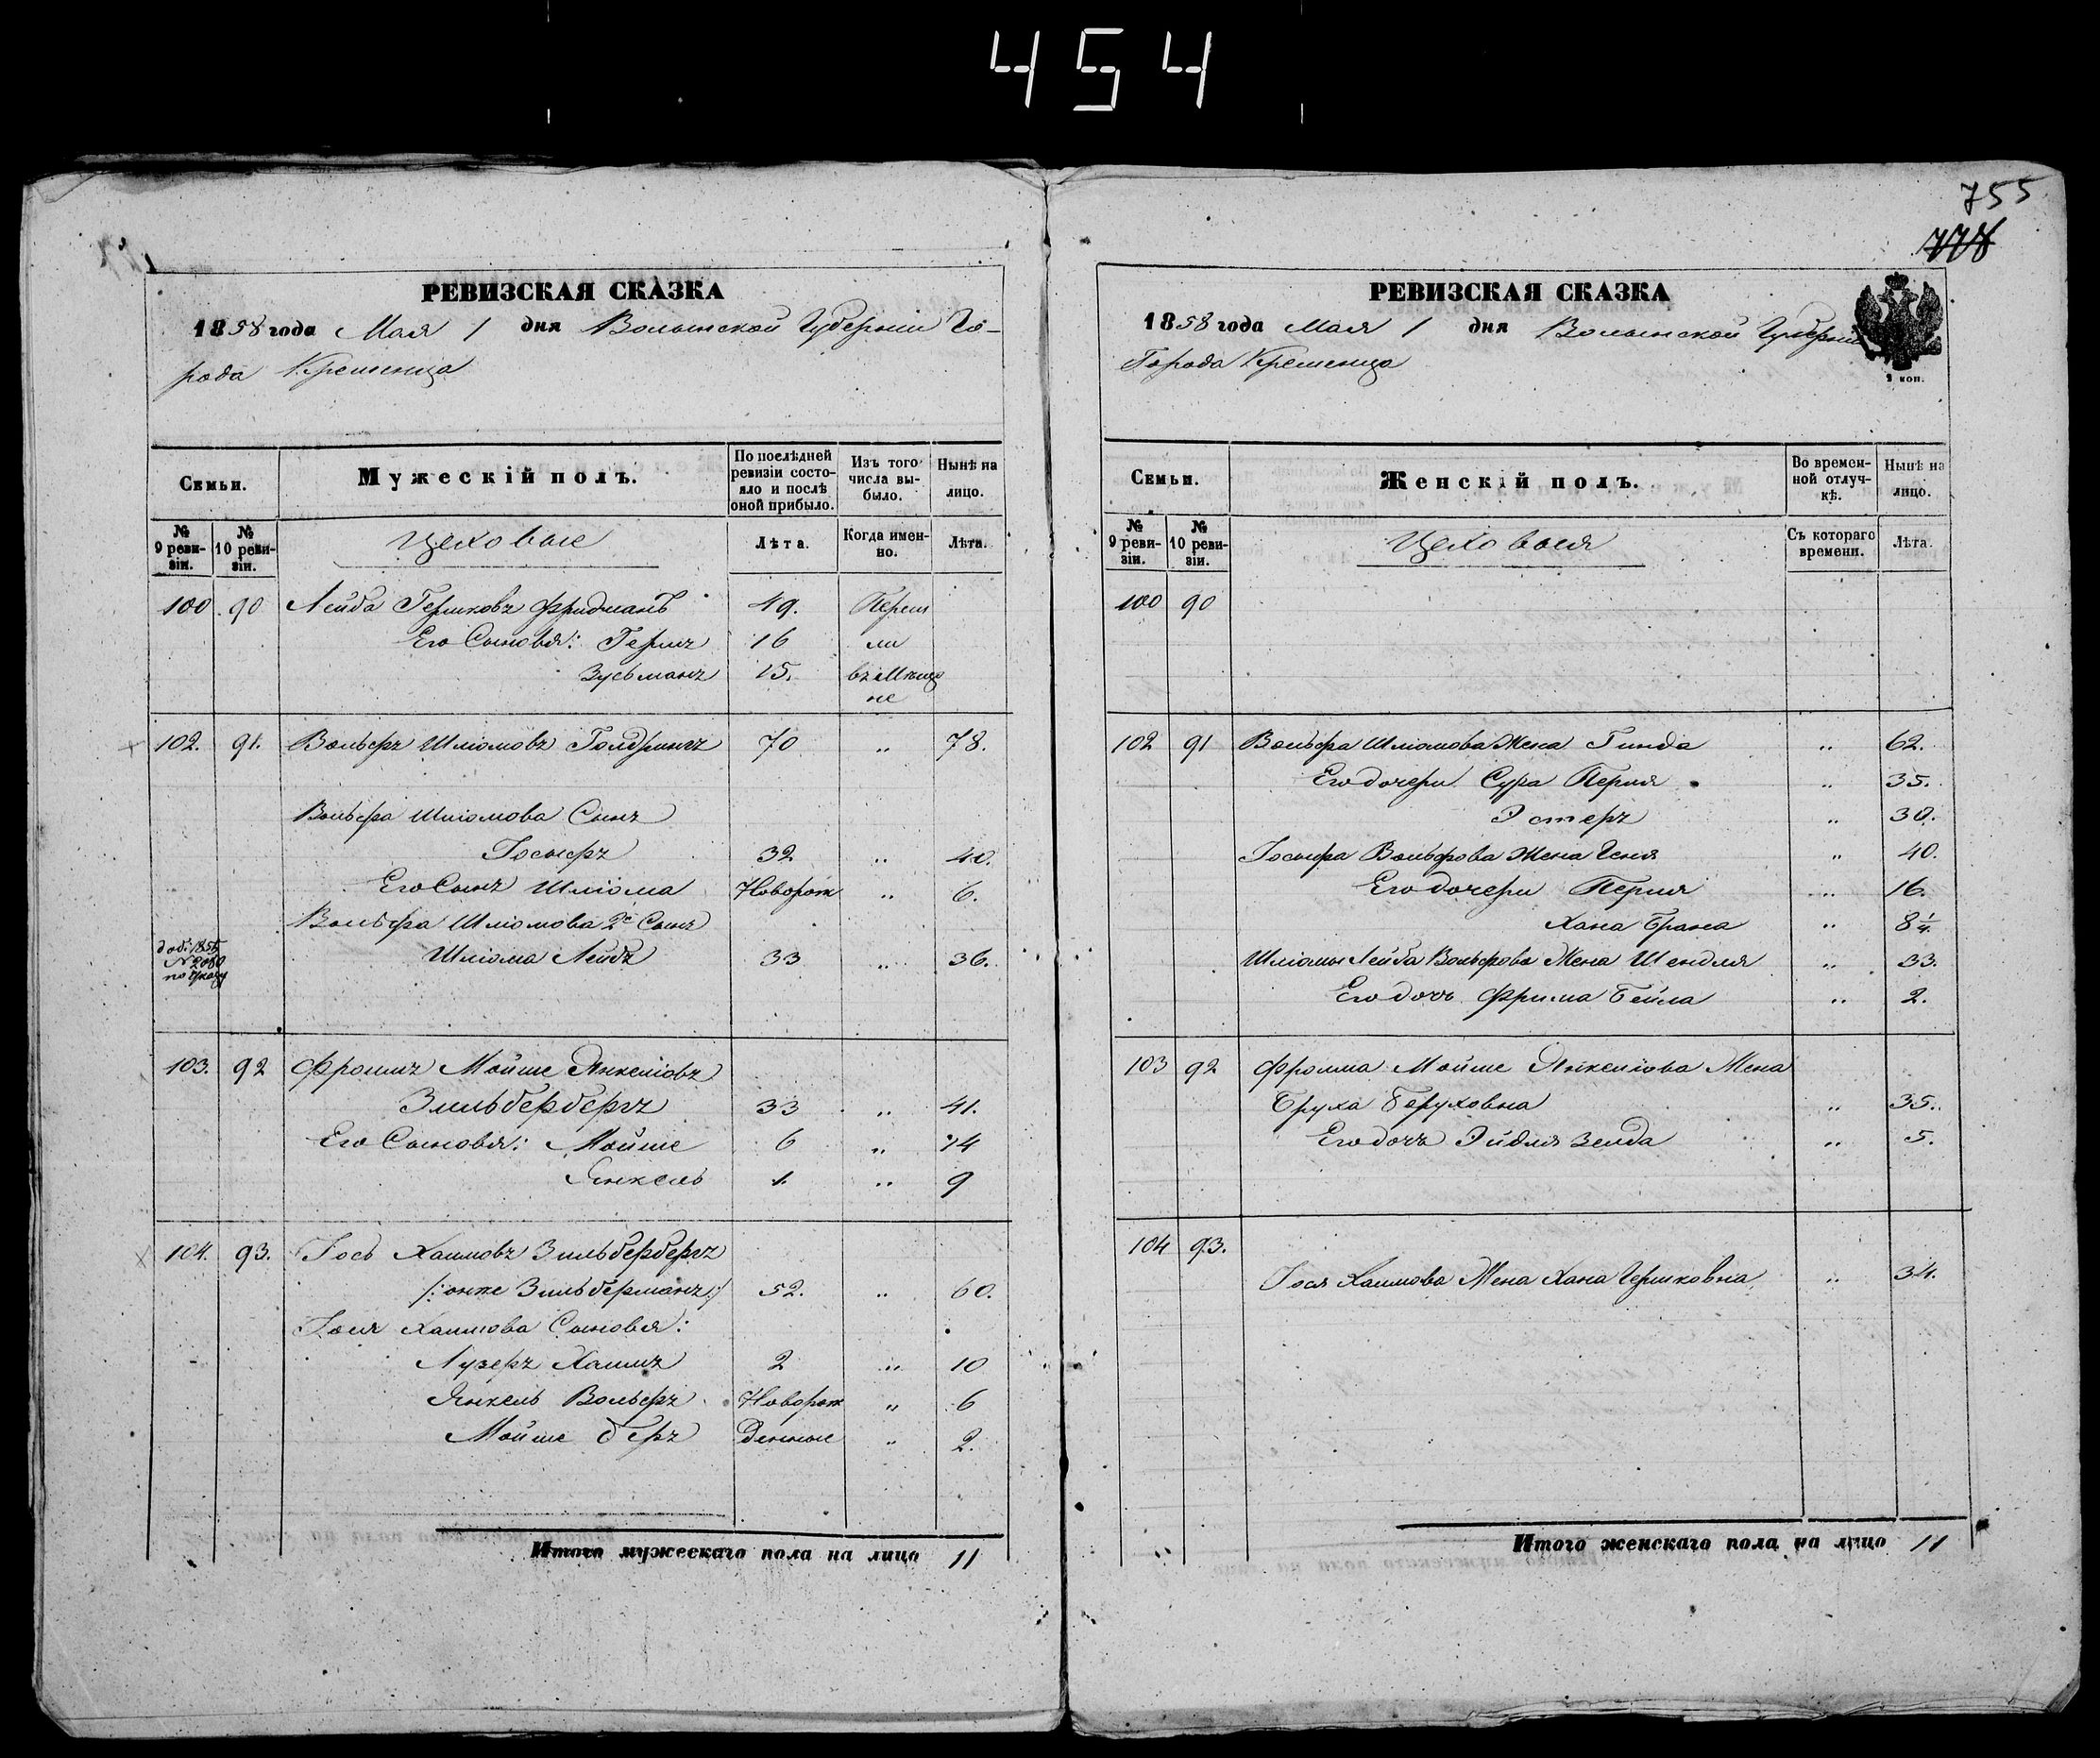 454
755
778
РЕВИЗСКАЯ СКАЗКА
1858 года Мая 1 дня Волынской Губерніи Го-
рода Кременца
Семьи.
Мужескій полъ.
По послѣдней ревизіи состо-
яло и послѣ оной прибыло.
Изъ того числа вы-
было.
Нынѣ на лицо.
№ 9 реви-
зіи.
№ 10 реви-
зіи.
Цеховые
Лѣта.
Когда имен-
но.
Лѣта.
100 90 Лейба Гершковъ Фридманъ 49. Переш
Его Сыновья: Гершъ 16 ли
Зусьманъ 15. въ Мѣща
не
102. 91. Вольфъ Шліомовъ Голдрингъ 70 „ 78.
Вольфа Шліомова Сынъ
Іосыфъ 32 „ 40.
Его Сынъ Шліома Новорож „ 6.
Вольфа Шліомова 2й Сынъ
доб: 1855
N 2080
по указу
Шліома Лейбъ 33 „ 36.
103. 92 Фроимъ Мойше Янкеліовъ
Зильбербергъ 33 „ 41.
Его Сыновья: Мойше 6 „ 14
Янкель 1. „ 9
104. 93. Іось Хаимовъ Зильбербергъ
/: онже Зильберманъ :/ 52. „ 60.
Іося Хаимова Сыновья:
Лузеръ Хаимъ 2 „ 10
Янкель Вольфъ Новорож „ 6
Мойше Беръ Денные „ 2.
Итого мужескаго пола на лицо 11
РЕВИЗСКАЯ СКАЗКА
1858 года Мая 1 дня Волынской Губерніи
Города Кременца
1 коп.
Семьи.
Женскій полъ.
Во времен-
ной отлуч-
кѣ.
Нынѣ на лицо.
№ 9 реви-
зіи.
№ 10 реви-
зіи.
Цеховыя
Съ котораго времени.
Лѣта.
100 90
102 91 Вольфа Шліомова Жена Гинда „ 62.
Его дочери Сура Перля „ 35.
Эстеръ „ 30.
Іосыфа Вольфова Жена Геня „ 40.
Его дочери Перля „ 16.
Хана Брана „ 8 1/4.
Шліомы Лейба Вольфова Жена Шендля „ 33.
Его дочь Фрима Бейла „ 2.
103 92 Фроима Мойше Янкеліова Жена
Бруха Беруховна „ 35.
Его дочь Эйдля Зелда „ 5.
104 93.
Іося Хаимова Жена Хана Гершковна „ 34.
Итого женскаго пола на лицо 11